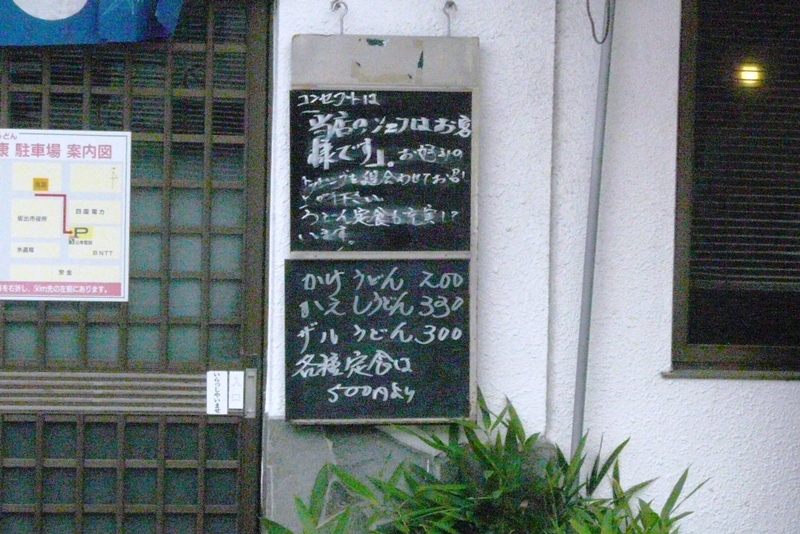 うどん
駐車場 案内図
四国電力
坂出市役所
P
水道局
NTT
を右折し、50m先の左側にあります。
いらっしゃいませ
コンセプトは
「当店のシェフはお客
様です」。お好みの
トッピングを組合わせてお召し
うどん定食も充実して
います。
かけうどん 200
かえしうどん 330
ザルうどん 300
各種定食は
500円より